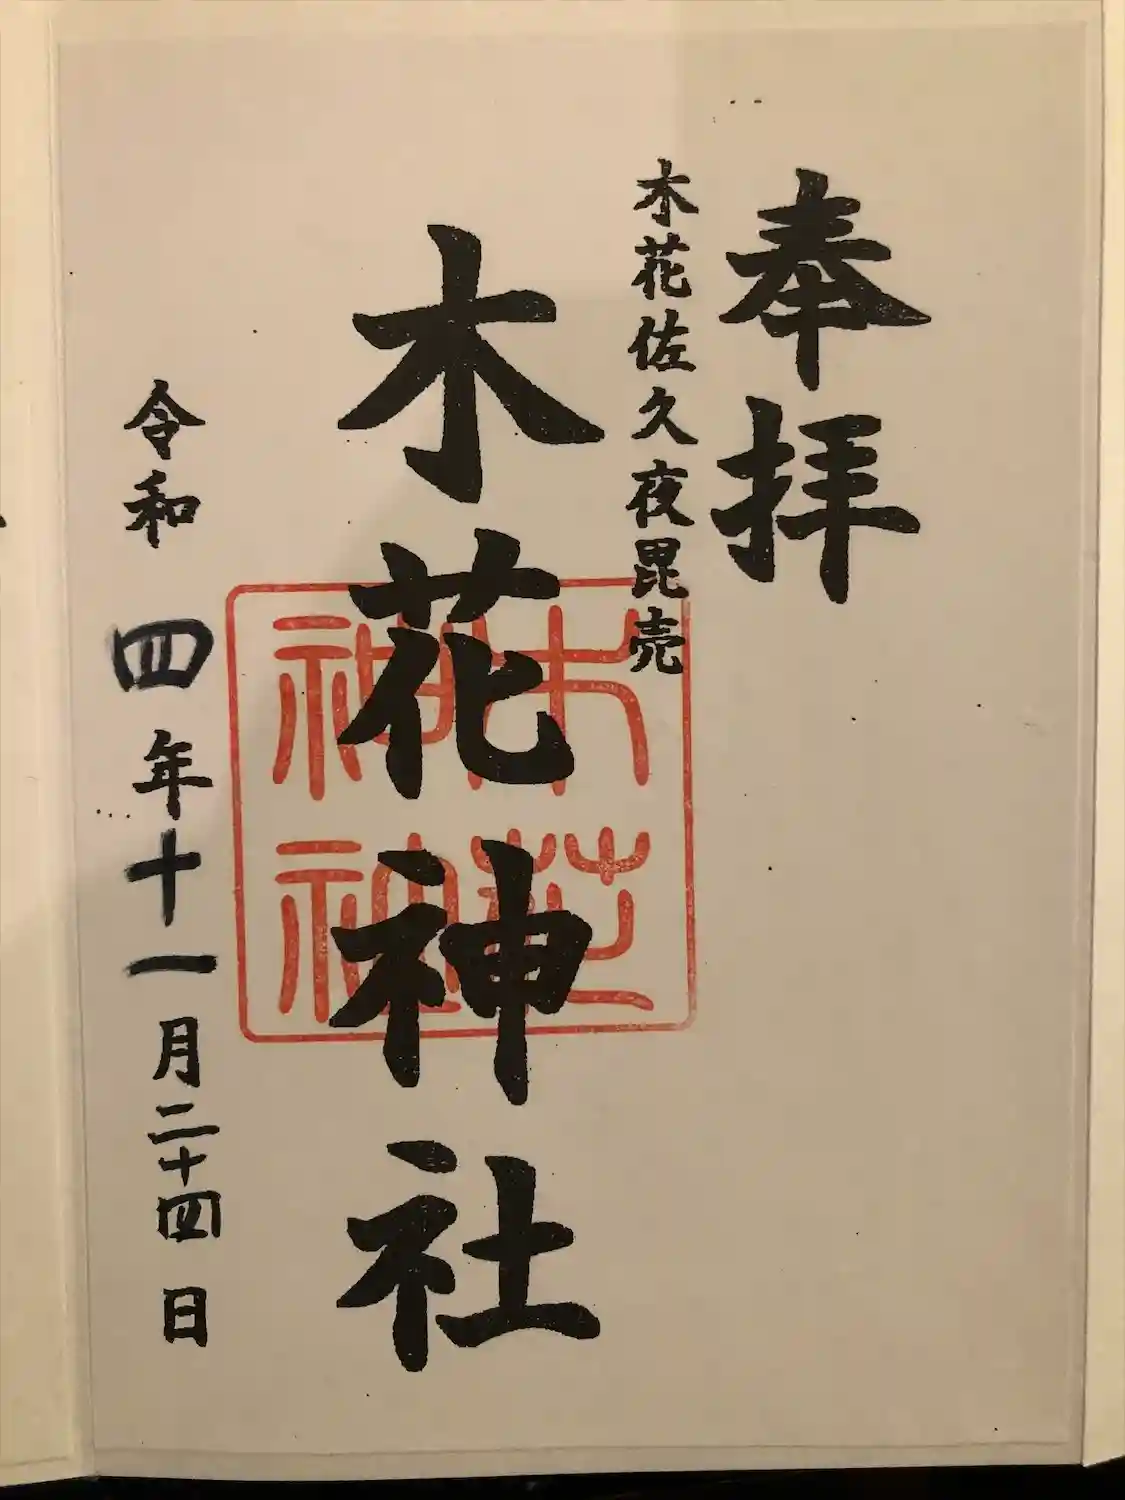 奉拝
木花佐久夜毘売
木花神社
木花
神社
令和四年十一月二十四日